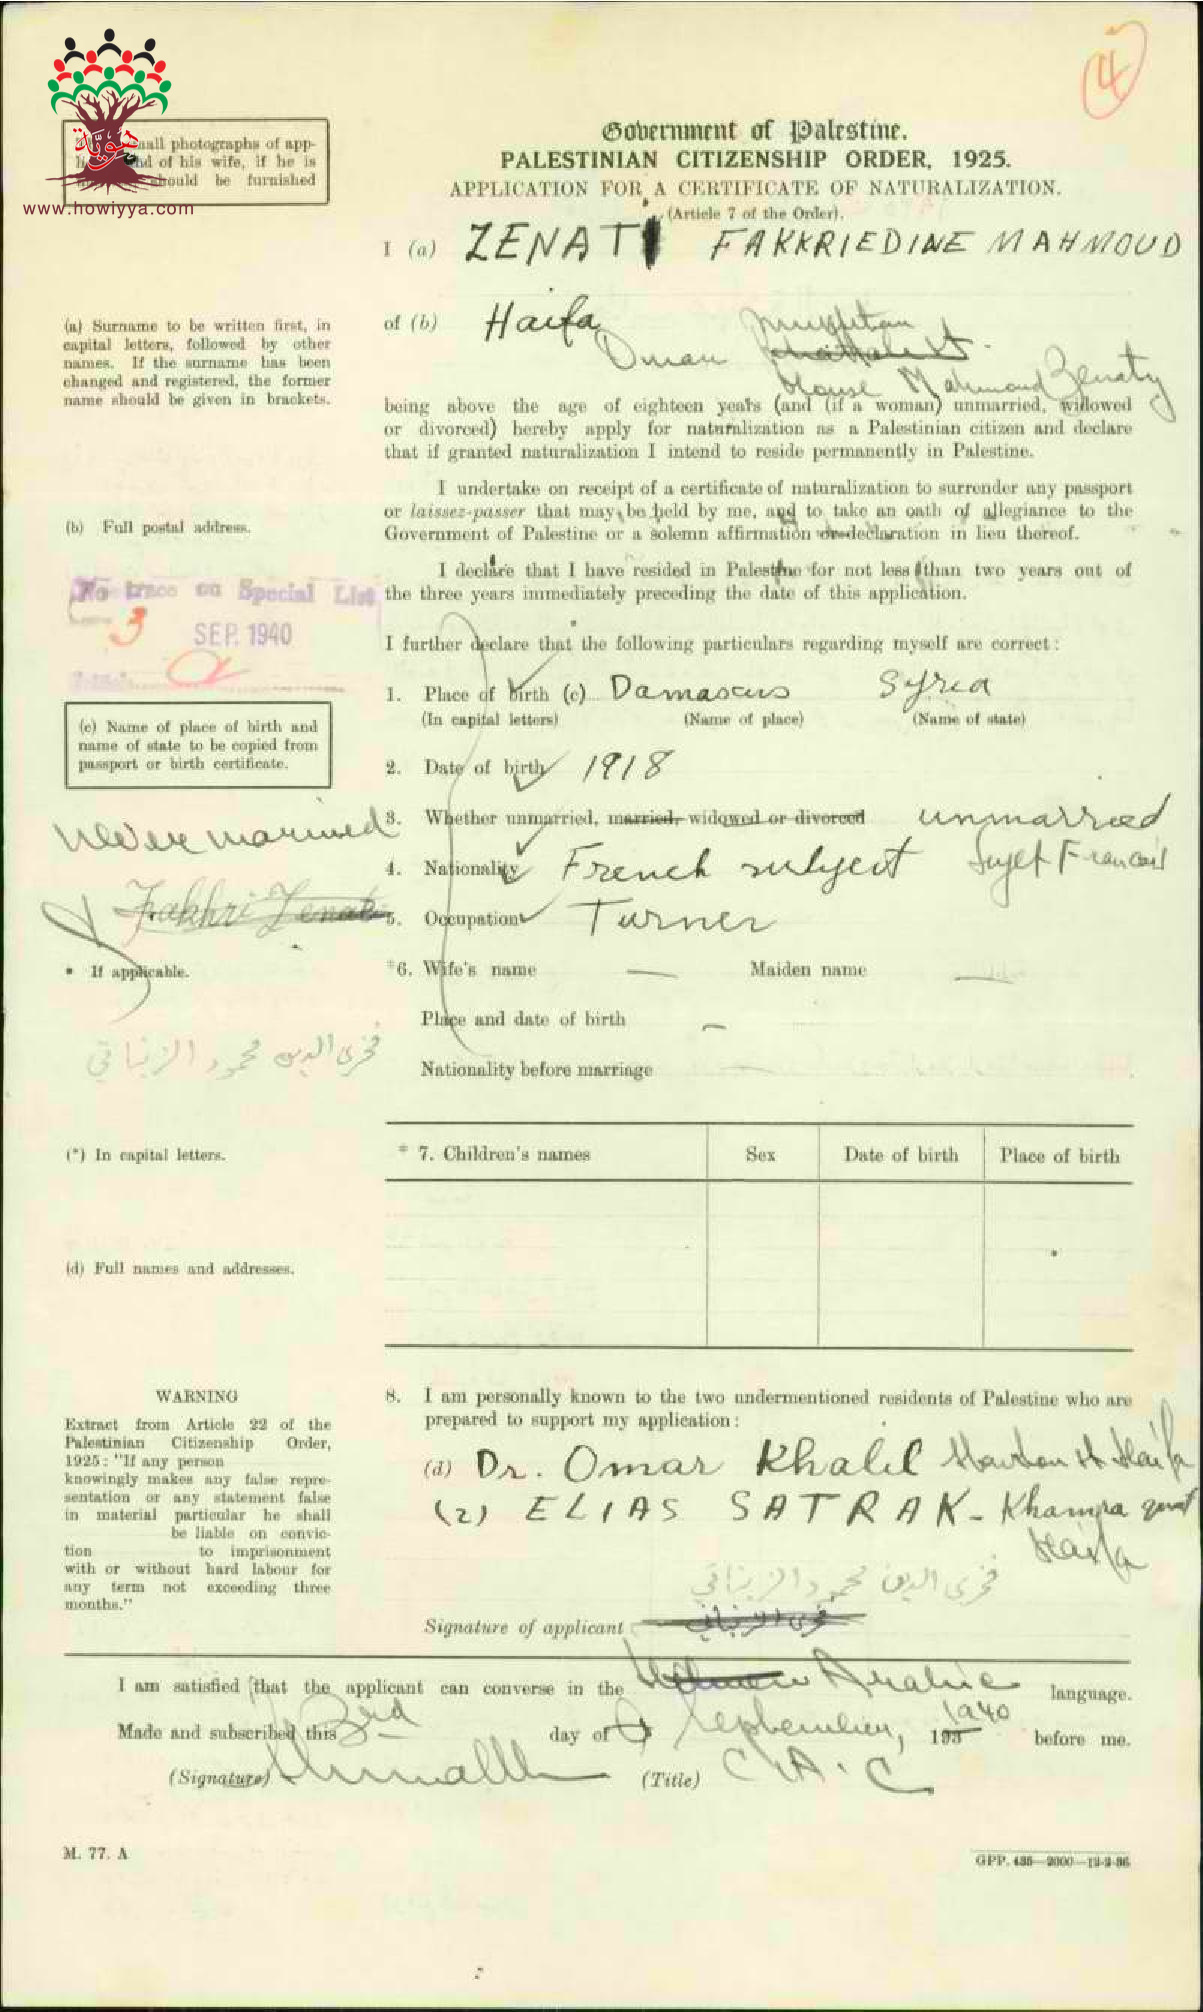 4
هوية
www.howiyya.com
small photographs of app-
and of his wife, if he is
should be furnished
Government of Palestine.
PALESTINIAN CITIZENSHIP ORDER, 1925.
APPLICATION FOR A CERTIFICATE OF NATURALIZATION.
(Article 7 of the Order).
I (a) ZENATI FAKKRIEDINE MAHMOUD
(a) Surname to be written first, in
capital letters, followed by other
names. If the surname has been
changed and registered, the former
name should be given in brackets.
of (b) Haifa
Omar
House Mahmoud Zenaty
being above the age of eighteen years (and (if a woman) unmarried, widowed
or divorced) hereby apply for naturalization as a Palestinian citizen and declare
that if granted naturalization I intend to reside permanently in Palestine.
I undertake on receipt of a certificate of naturalization to surrender any passport
or laissez-passer that may be held by me, and to take an oath of allegiance to the
Government of Palestine or a solemn affirmation or declaration in lieu thereof.
(b) Full postal address.
I declare that I have resided in Palestine for not less than two years out of
the three years immediately preceding the date of this application.
No trace on Special List
3 SEP. 1940
I further declare that the following particulars regarding myself are correct :
1. Place of birth (c) Damascus Syria
(In capital letters) (Name of place) (Name of state)
(c) Name of place of birth and
name of state to be copied from
passport or birth certificate.
2. Date of birth 1918
3. Whether unmarried, married, widowed or divorced unmarried
never married
4. Nationality French subject Sujet Francais
Fakhri Zenati
5. Occupation Turner
* If applicable.
*6. Wife's name — Maiden name —
Place and date of birth –
Nationality before marriage
فخري الدين محمود الزيناتي
(*) In capital letters.
* 7. Children's names Sex Date of birth Place of birth
(d) Full names and addresses.
WARNING
Extract from Article 22 of the
Palestinian Citizenship Order,
1925 : "If any person
knowingly makes any false repre-
sentation or any statement false
in material particular he shall
be liable on convic-
tion to imprisonment
with or without hard labour for
any term not exceeding three
months."
8. I am personally known to the two undermentioned residents of Palestine who are
prepared to support my application :
(d) Dr. Omar Khalil Haifa
(2) ELIAS SATRAK - Khamra
Haifa
فخري الدين محمود الزيناتي
Signature of applicant
I am satisfied that the applicant can converse in the Arabic language.
Made and subscribed this 3rd day of September, 193 1940 before me.
(Signature) (Title) C.A.C
M. 77. A
GPP. 435—2000—12-2-36